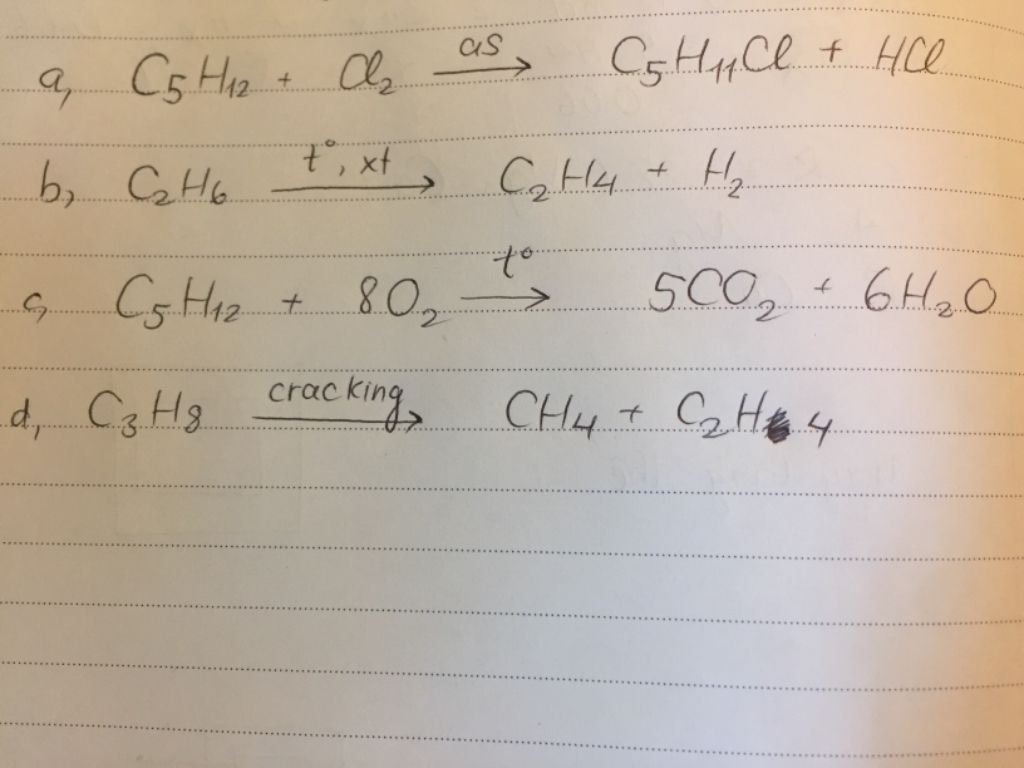 a, C₅H₁₂ + Cl₂ —as→ C₅H₁₁Cl + HCl
b, C₂H₆ —t°, xt→ C₂H₄ + H₂
c, C₅H₁₂ + 8O₂ —t°→ 5CO₂ + 6H₂O
d, C₃H₈ —cracking→ CH₄ + C₂H₄